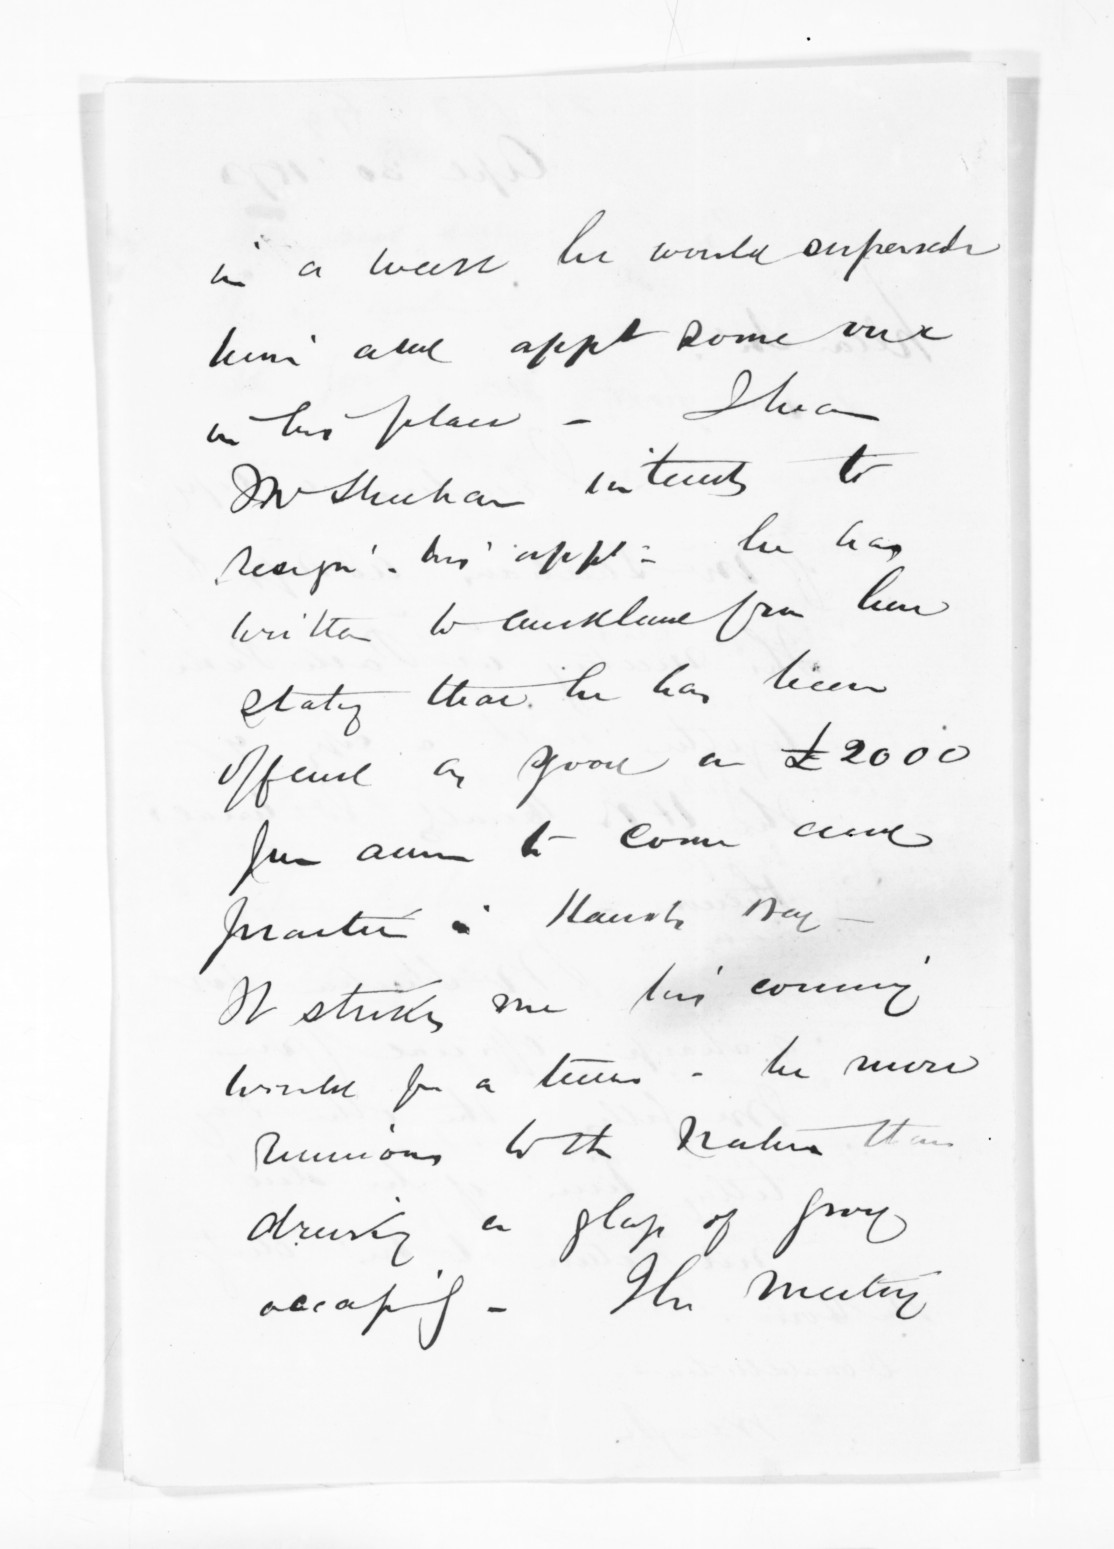 in a week he would supersede
him and appt some one
in his place - I hear
Mr Sheehan intends to
resign his appt - he has
written to Auckland from here
stating that he has been
offered as good as £2000
per annum to come and
practice in Hawkes Bay -
It strikes me his coming
would for a time - be more
to the Natives than
drinking a glass of grog
occasly - The meeting